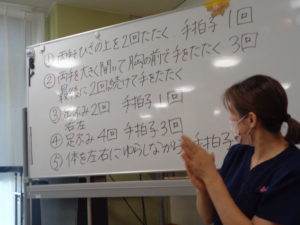 ① 両手ひざの上を2回たたく 手拍子1回
② 両手を大きく開いて胸の前で手をたたく 3回
最後に2回続けて手をたたく
③ 足ぶみ2回 手拍子1回
右左
④ 足ぶみ4回 手拍子3回
⑤ 体を左右にゆらしながら 手拍子